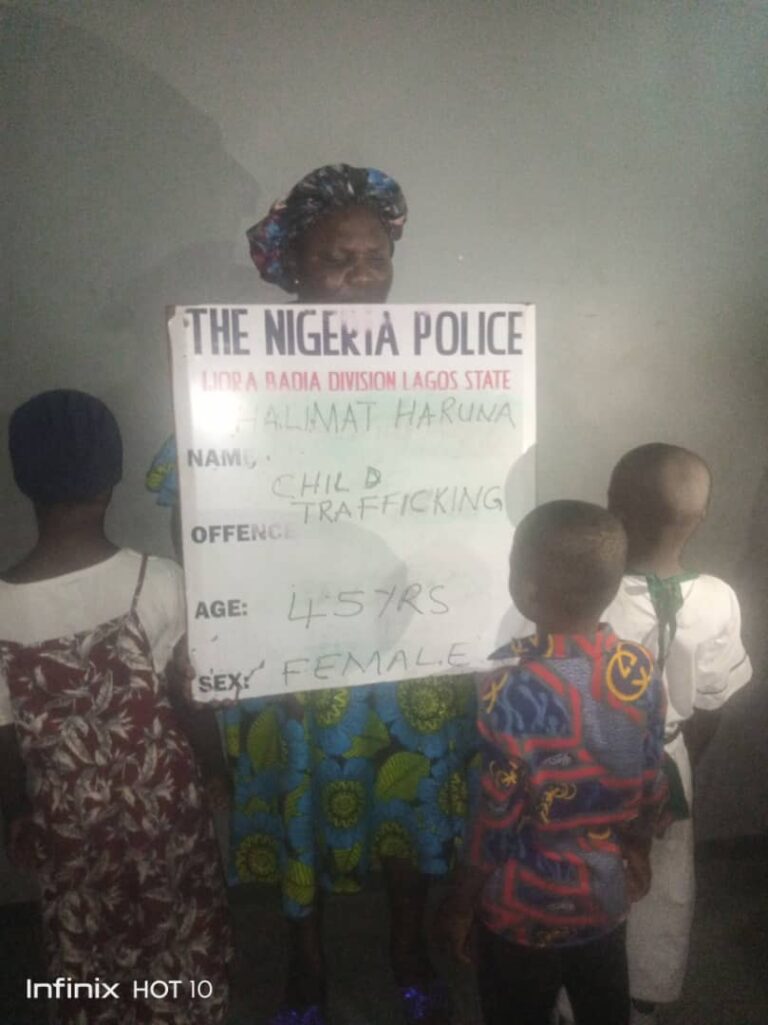 THE NIGERIA POLICE
IJORA BADIA DIVISION LAGOS STATE
HALIMAT HARUNA
NAME:
CHILD
TRAFFICKING
OFFENCE
AGE: 45YRS
SEX: FEMALE
Infinix HOT 10